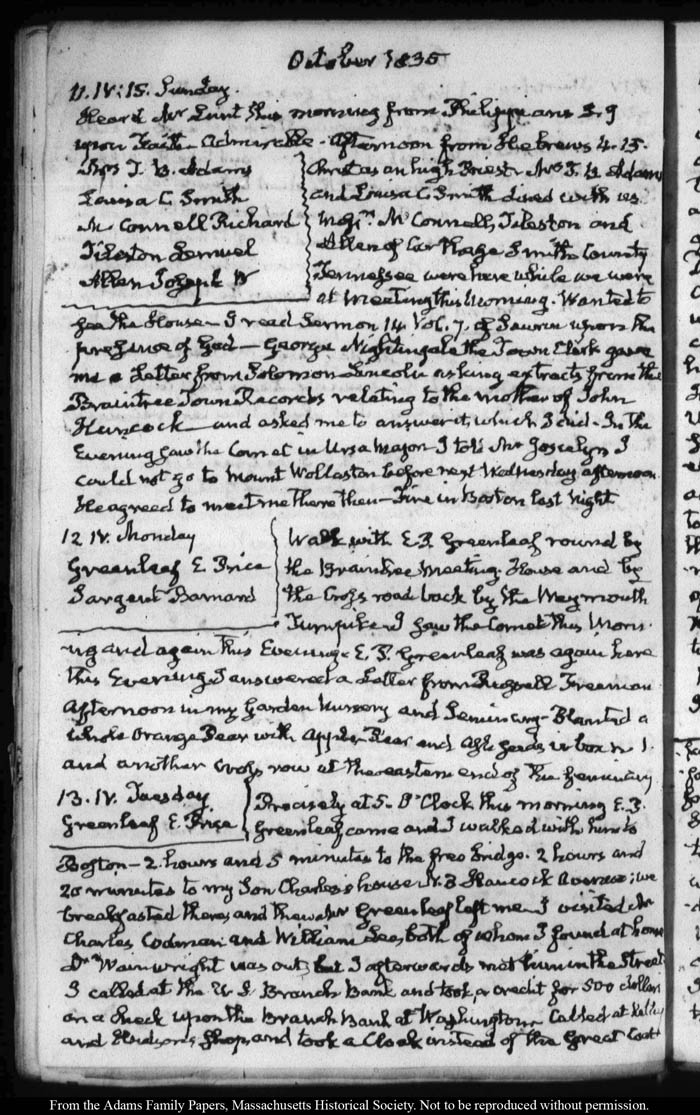 October 1835
11. IV:15. Sunday.
Heard Mr Lunt this morning from Philippians 3.9
upon Faith. Admirable. Afternoon from Hebrews 4.15.
Mrs T. B. Adams
Louisa C. Smith
McConnell Richard
Tileston Lemuel
Allen Joseph W
Christ as an high Priest. Mrs T. B. Adams
and Louisa C Smith dined with us.
McConnell, Tileston and
Allen of Carthage Smith County
Tennessee were here while we were
at Meeting this Morning. Wanted to
see the House. I read Sermon 14. Vol. 7. of Saurin upon the
presence of God — George Nightingale the Town Clerk gave
me a Letter from Solomon Lincoln asking extracts from the
Braintree Town Records relating to the mother of John
Hancock — and asked me to answer it, which I did. In the
Evening saw the Comet in Ursa Major. I told Mr Joscelyn I
could not go to Mount Wollaston before next Wednesday afternoon.
He agreed to meet me there then — Fire in Boston last Night
12. IV. Monday
Greenleaf E. Price
Sargent Barnard
Walk with E. P. Greenleaf round by
the Braintree Meeting-House and by
the Cross road back by the Weymouth
Turnpike. I saw the Comet this Morn-
ing and again this Evening. E. P. Greenleaf was again here
this Evening. I answered a Letter from Russell Freeman
Afternoon in my Garden Nursery and Seminary. Planted a
whole Orange Pear with Apple, Pear and seeds in box N 1.
and another cross row at the eastern end of the Seminary
13. IV. Tuesday
Greenleaf E. Price
Precisely at 5. O'Clock this morning E. P.
Greenleaf came and I walked with him to
Boston — 2. hours and 5 minutes to the free bridge. 2 hours and
20 minutes to my Son Charles's house N. 3 Hancock Avenue; we
breakfasted there, and then Greenleaf left me. I visited Mr
Charles Codman and William Lee, both of whom I found at home
Dr Wainwright was out, but I afterwards met him in the Street
I called at the U. S. Branch Bank and took a credit for 500 dollars
on a check upon the Branch Bank at Washington. Called at Kelley
and Hudson's shop, and took a Cloak instead of the Great Coat
From the Adams Family Papers, Massachusetts Historical Society. Not to be reproduced without permission.